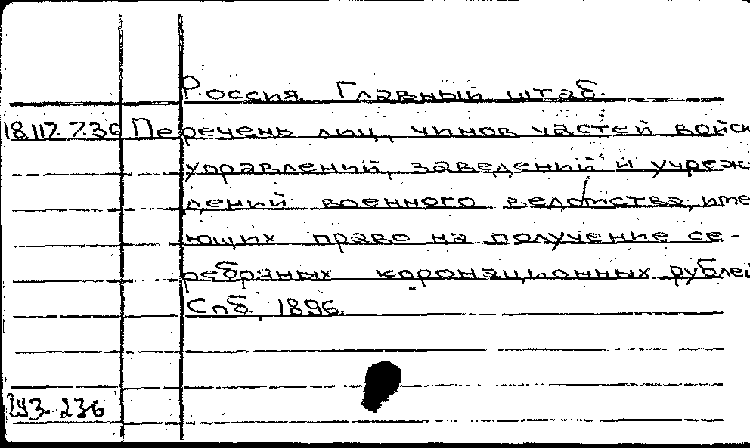 Россия. Главный штаб.
18.117.7.30 Перечень лиц, чинов частей войск
управлений, заведений и учреж
дений военного ведомства, име
ющих право на получение се-
ребряных коронационных рублей
Спб, 1896.
243-236